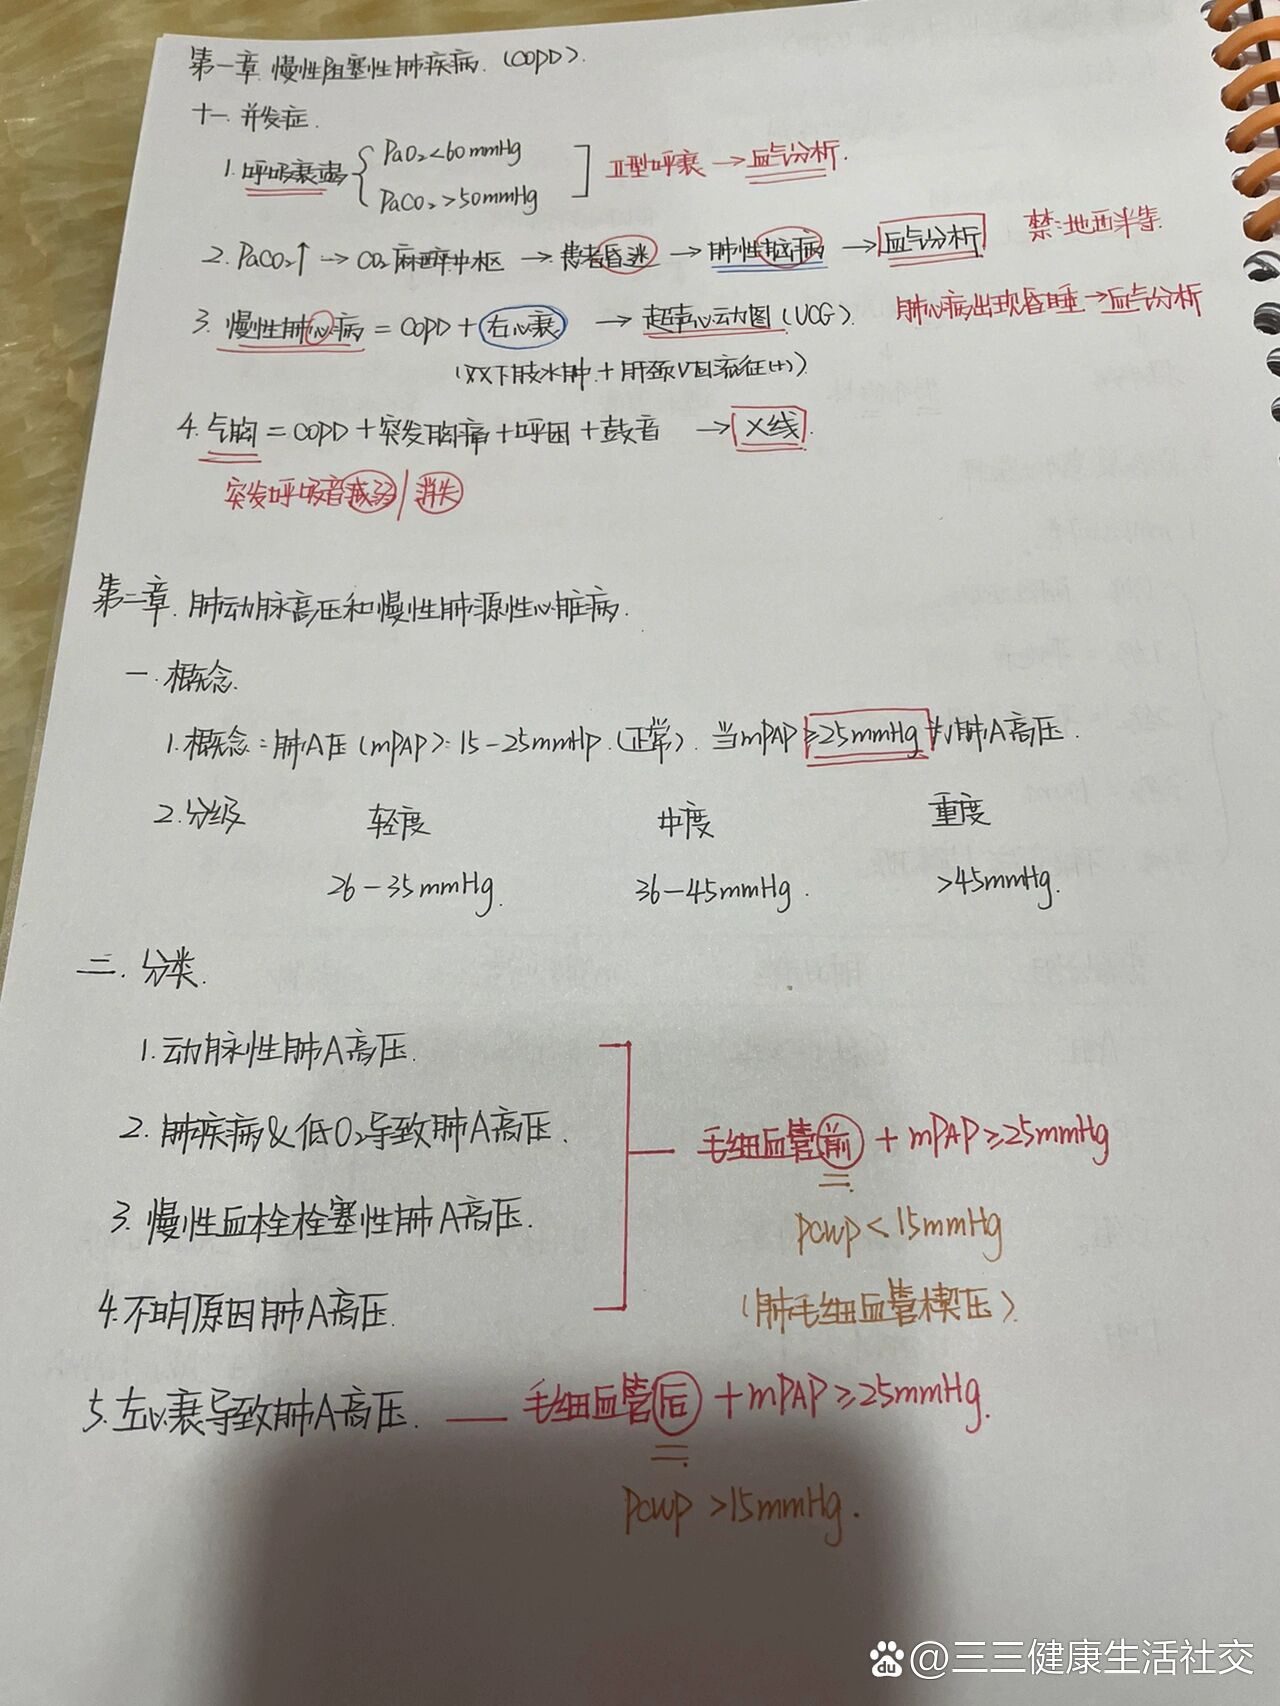 第一章.慢性阻塞性肺疾病.(COPD).
十一.并发症.
1.呼吸衰竭 { PaO₂<60mmHg
PaCO₂>50mmHg ] Ⅱ型呼衰→血气分析.
2. PaCO₂↑→CO₂麻醉中枢→患者昏迷→肺性脑病→血气分析 禁:地西泮等.
3. 慢性肺心病=COPD+右心衰→超声心动图(UCG). 肺心病出现昏睡→血气分析
(双下肢水肿+肝颈V回流征(+)).
4.气胸=COPD+突发胸痛+呼困+鼓音→X线.
突发呼吸音减弱/消失
第二章.肺动脉高压和慢性肺源性心脏病.
一.概念.
1.概念:肺A压(mPAP):15-25mmHP.(正常). 当mPAP≥25mmHg为肺A高压.
2.分级 轻度 中度 重度
26-35mmHg. 36-45mmHg. >45mmHg.
二.分类.
1.动脉性肺A高压.
2.肺疾病&低O₂导致肺A高压.
3.慢性血栓栓塞性肺A高压.
4.不明原因肺A高压.
毛细血管前+mPAP≥25mmHg
PCWP<15mmHg
(肺毛细血管楔压).
5.左心衰导致肺A高压. — 毛细血管后+mPAP≥25mmHg.
PCWP>15mmHg.
du @三三健康生活社交